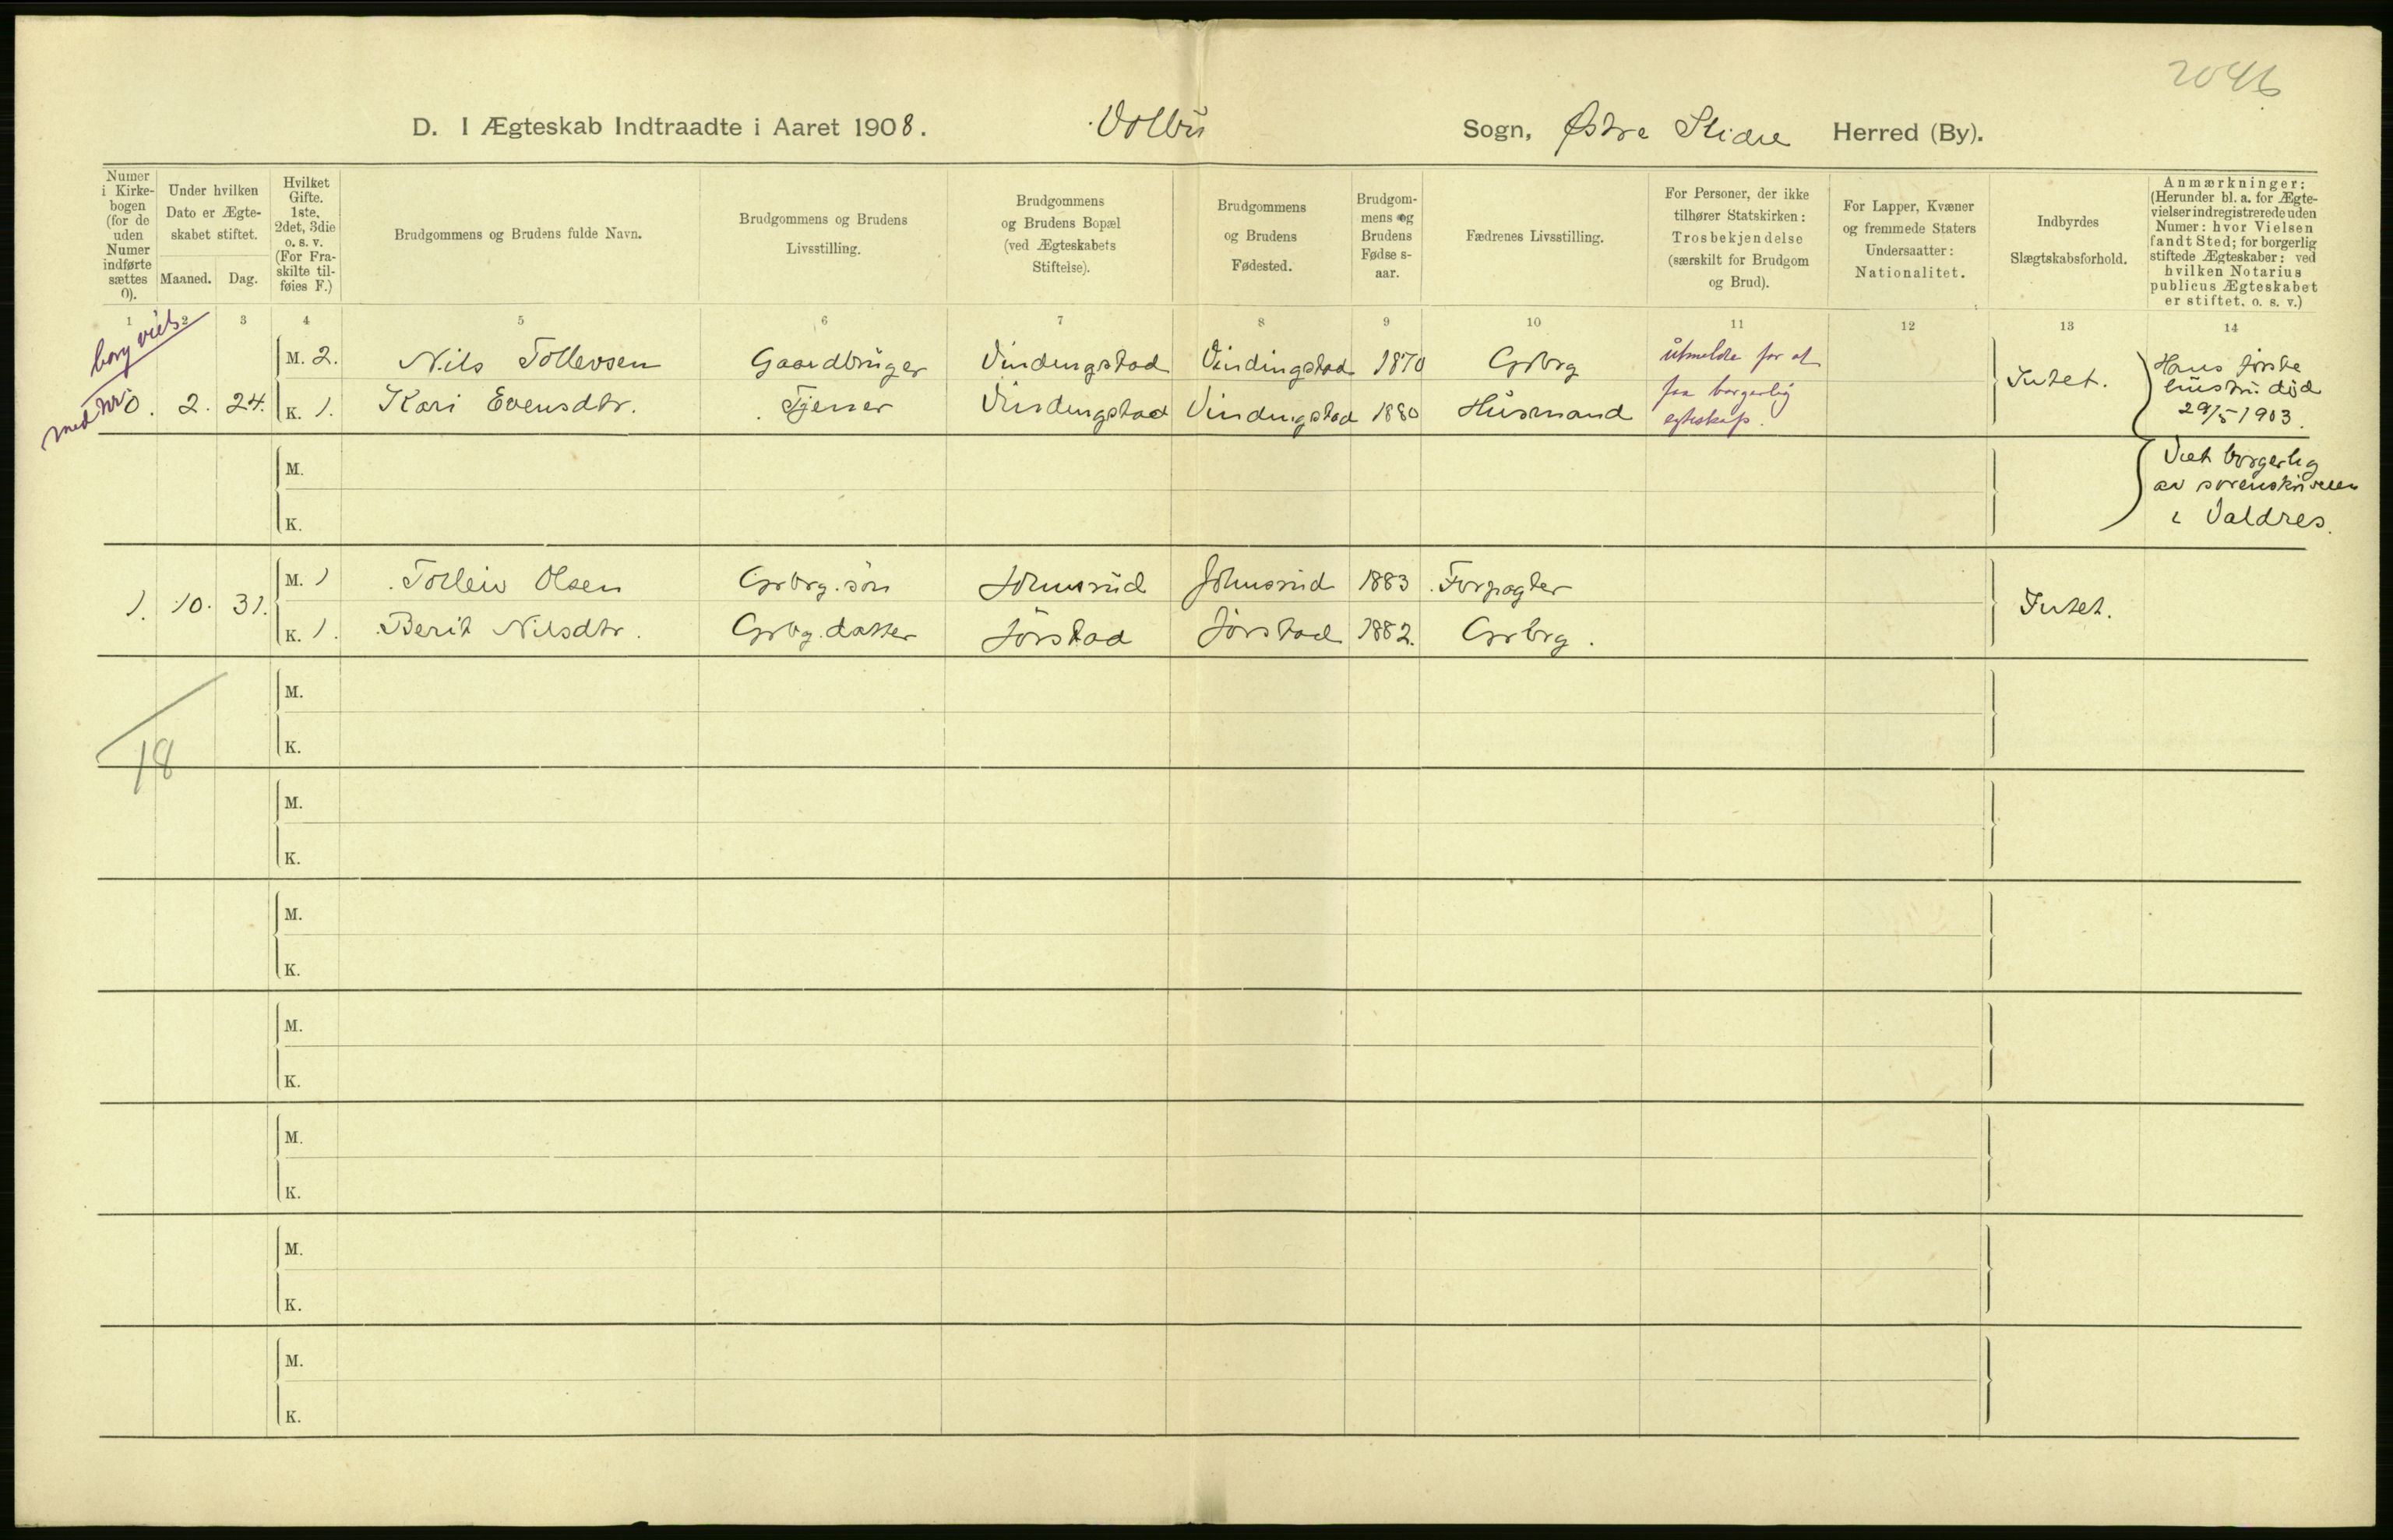 2046
D. I Ægteskab Indtraadte i Aaret 1908. Volbu Sogn, Østre Slidre Herred (By).
Numer i Kirkebogen (for de uden Numer indførte sættes 0).
Under hvilken Dato er Ægteskabet stiftet.
Maaned. Dag.
Hvilket Gifte. 1ste, 2det, 3die o. s. v. (For Fraskilte tilføies F.)
Brudgommens og Brudens fulde Navn.
Brudgommens og Brudens Livsstilling.
Brudgommens og Brudens Bopæl (ved Ægteskabets Stiftelse).
Brudgommens og Brudens Fødested.
Brudgommens og Brudens Fødselsaar.
Fædrenes Livsstilling.
For Personer, der ikke tilhører Statskirken: Trosbekjendelse (særskilt for Brudgom og Brud).
For Lapper, Kvæner og fremmede Staters Undersaatter: Nationalitet.
Indbyrdes Slægtskabsforhold.
Anmærkninger: (Herunder bl. a. for Ægtevielser indregistrerede uden Numer: hvor Vielsen fandt Sted; for borgerlig stiftede Ægteskaber: ved hvilken Notarius publicus Ægteskabet er stiftet, o. s. v.)
1 2 3 4 5 6 7 8 9 10 11 12 13 14
borg viet
med nr
M. 2. Nils Tollevsen Gaardbruger Vindingstad Vindingstad 1870 Grbrg utmeldte for at
0. 2. 24. K. 1. Kari Evensdtr. Tjener Vindingstad Vindingstad 1880 Husmand faa borgerlig
egteskap.
Intet.
Hans første
hustru død
29/5 1903.
M.
K.
Viet borgerlig
av sorenskriveren
i Valdres.
M. 1 Tollein Olsen Grbrg. søn Johnsrud Johnsrud 1883 Forpagter
1. 10. 31. Intet.
K. 1. Berit Nilsdtr. Grbrg. datter Jørstad Jørstad 1882. Grbrg.
M.
K.
18
M.
K.
M.
K.
M.
K.
M.
K.
M.
K.
M.
K.